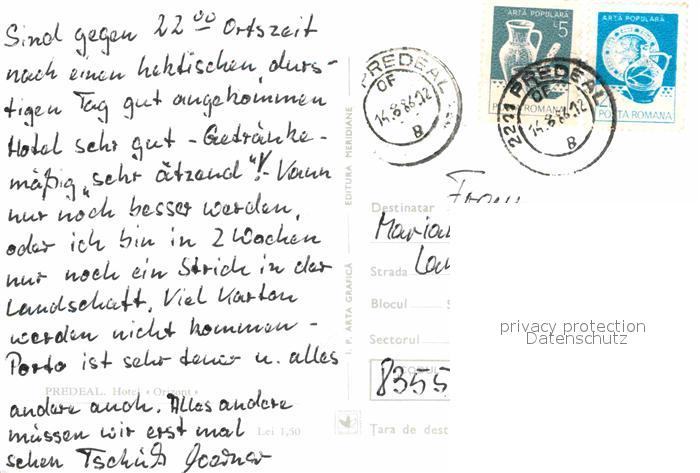 Sind gegen 22 00 Ortszeit
nach einen hektischen, durs-
tigen Tag gut angekommen
Hotel sehr gut - Getränke-
mäßig "sehr ätzend"! - Kann
nur noch besser werden,
oder ich bin in 2 Wochen
nur noch ein Strich in der
Landschaft. Viel Karten
werden nicht kommen -
Porto ist sehr teuer u. alles
PREDEAL. Hotel «Orizont»
andere auch. Alles andere
müssen wir erst mal
Lei 1,50
sehen Tschüß
I. P. ARTA GRAFICĂ EDITURA MERIDIANE
ARTĂ POPULARĂ
L5
POȘTA ROMANA
ARTĂ POPULARĂ
2
POȘTA ROMANA
PREDEAL
OF
14.8.86.12
8
2211 PREDEAL
OF
14.8.86.12
8
Frau
Destinatar
Maria
Strada
Blocul
Sectorul
8355
Țara de dest
privacy protection
Datenschutz